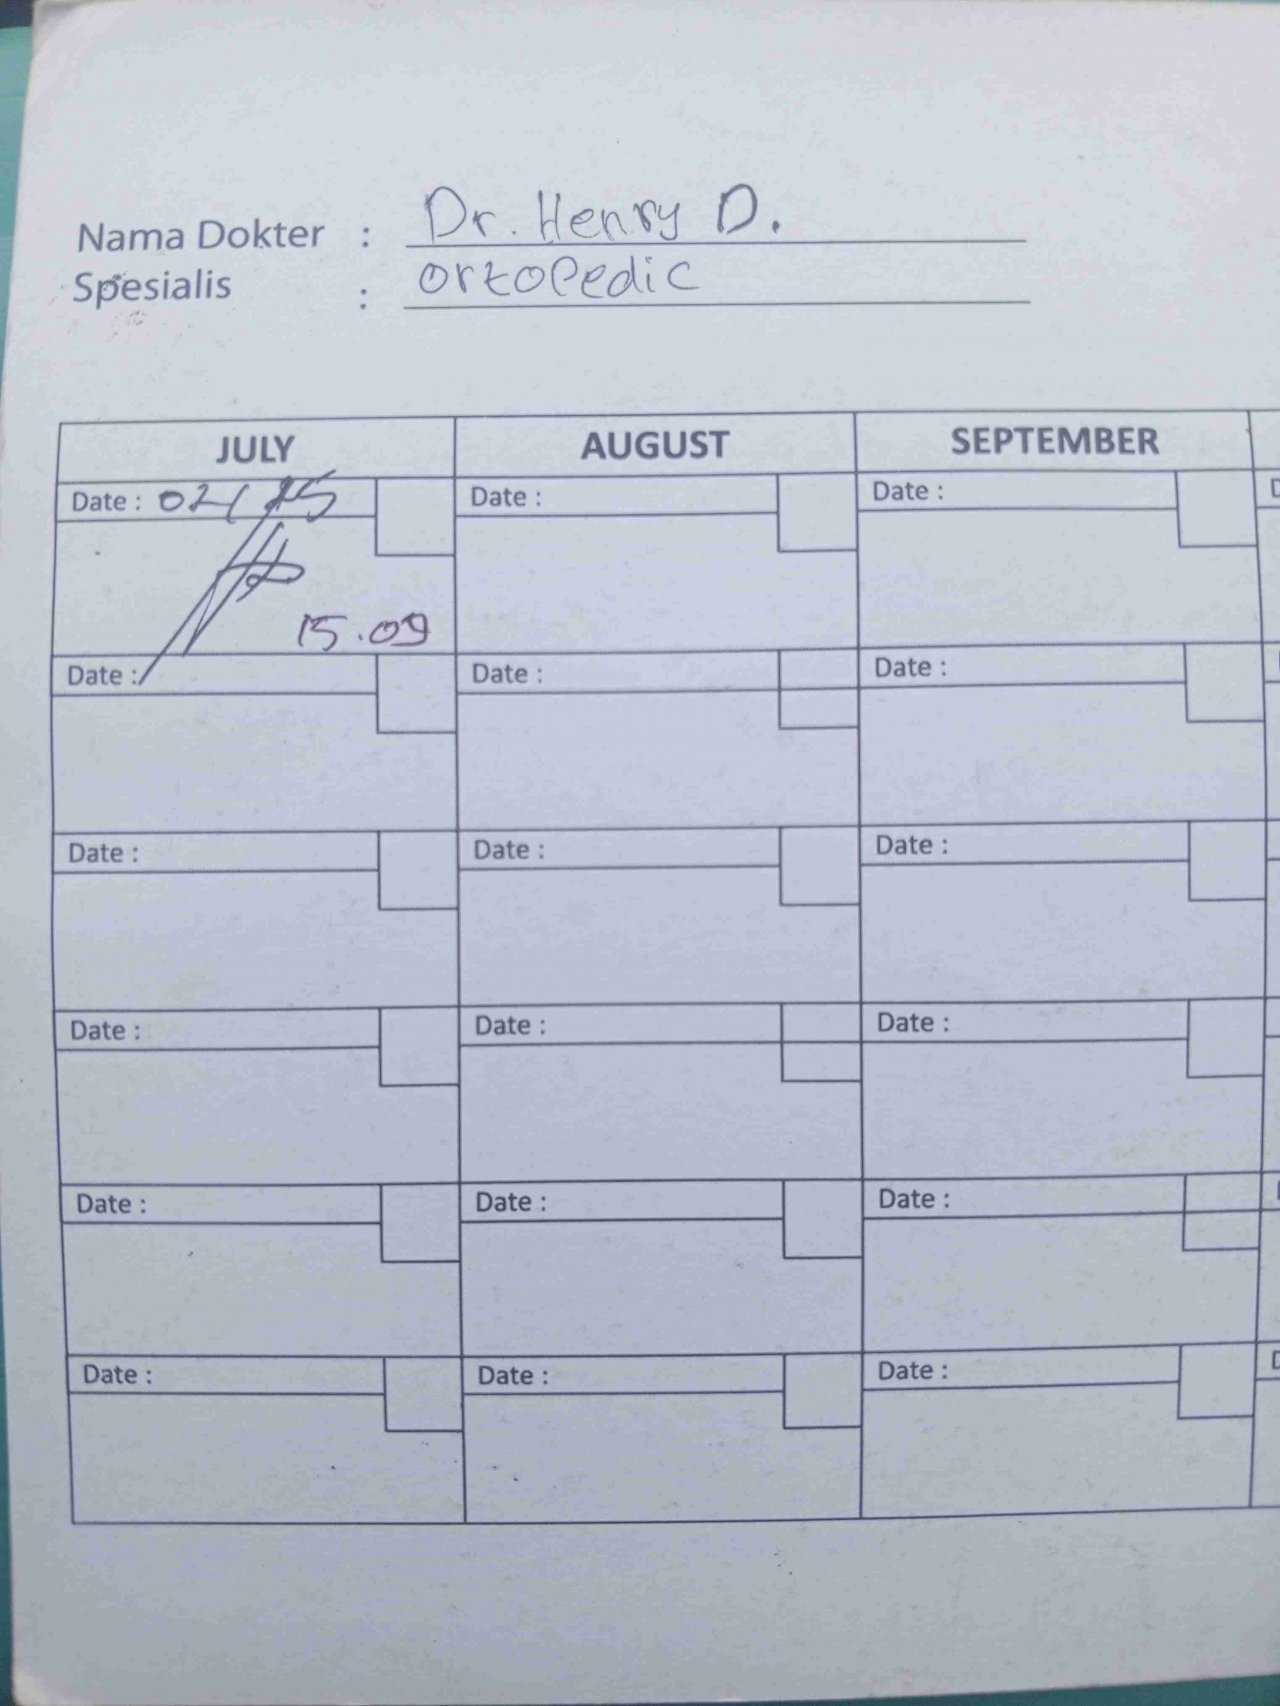 Nama Dokter : Dr. Henry D.
Spesialis : ortopedic
JULY AUGUST SEPTEMBER
Date : 02/25 Date : Date :
15.09
Date : Date : Date :
Date : Date : Date :
Date : Date : Date :
Date : Date : Date :
Date : Date : Date :